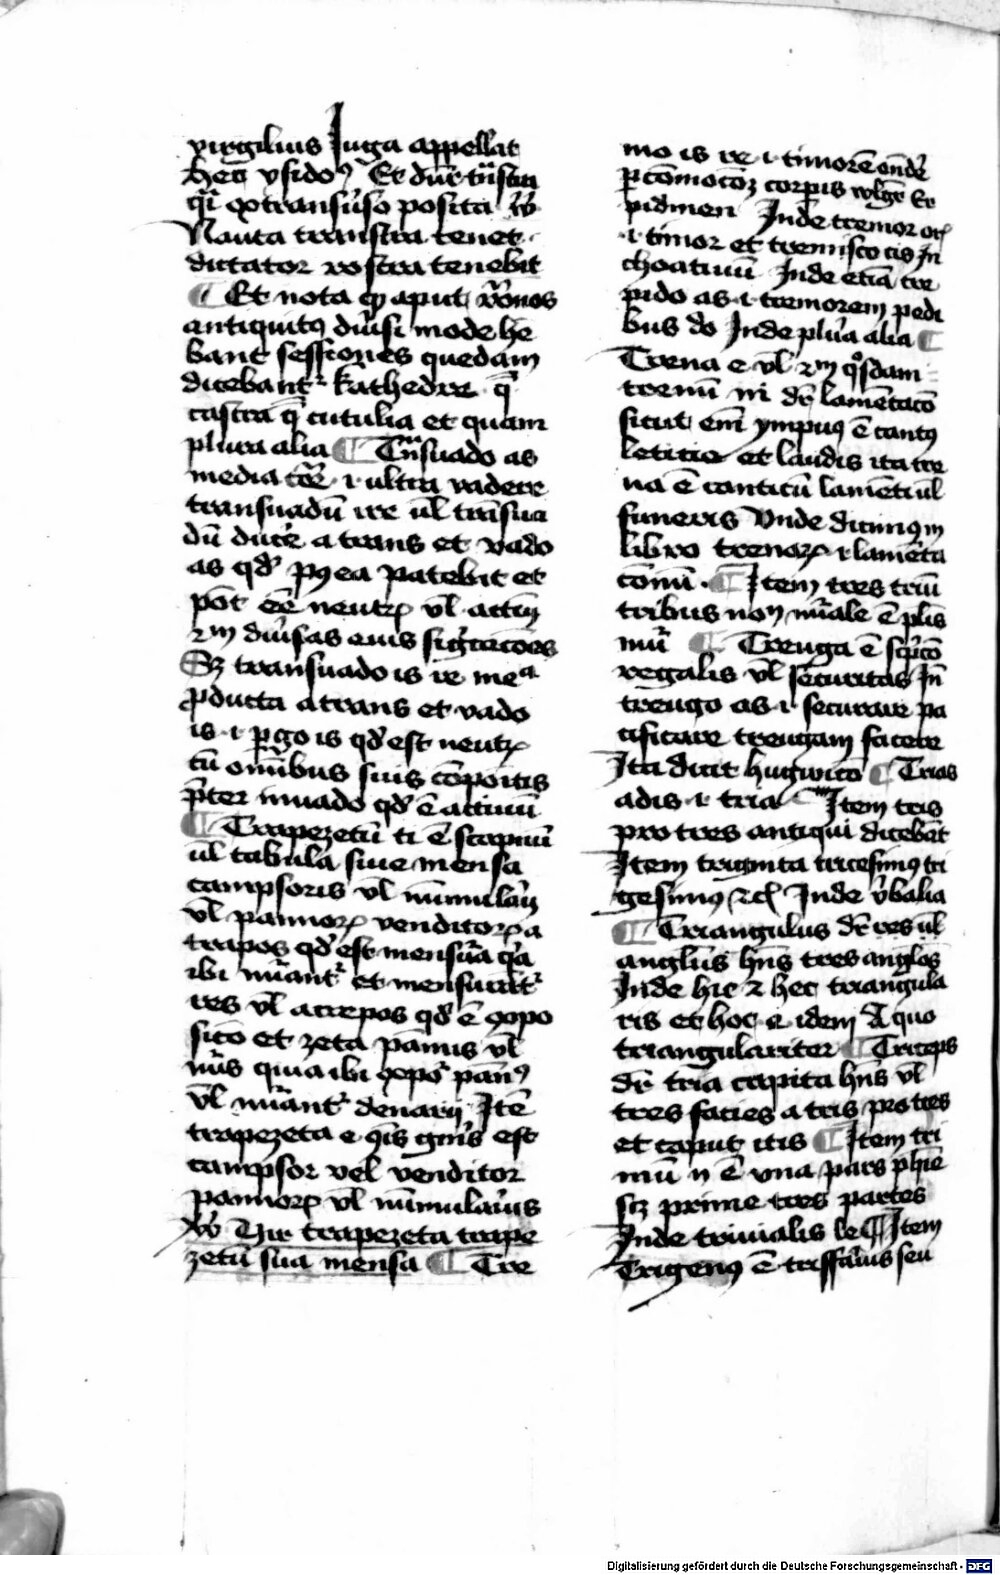 virgilius Juga appellat
hec ysido⁹ Et dūr trāstra
qͥ ex transūso posita v̄s
Nauta transtra tenet
dictator rostra tenebit
¶ Et nota ꝙ aput rōnos
antiquitꝰ diūsi mode he
bant sessiones quedam
dicebantͬ kathedre q̄
castra q̄ cutulia et quam
plura alia ¶ Trāsuado as
media cor̄ ·i· ultra vadere
transuadū ire ūl trāsua
dū duce᷑ a trans et vado
as qd̓ pꝰ ea patebit et
pōt eē neutꝝ vl̄ actiū
ẜm diūsas eius sig̓tacōes
Sꝫ transuado is re meᵃ
ꝓducta a trans et vado
is ·i· ꝑgo is qd̓ est neutꝝ
cū om̄ibus suis cōpoītis
p̄ter inuado qd̓ ē actiuū
¶ Trapezetū ti ē scapnū
ūl tabula siue mensa
campsoris vl̄ nūmulaīj
vl̄ pannoꝝ venditoꝝ a
trapos qd̓ est mensūa qͥa
ibi nūantͬ et mensurātͬ
res vl̄ a trepos qd̓ ē ꝯpo
sitō et zeta pānus vl̄
nūs quia ibi ꝯpoͬ pānꝰ
vl̄ nūantͬ denarij Itē
trapezeta e ꝗis gn̄is est
campsor vel venditor
pannoꝝ vl̄ nūmularīus
v̄s Vir trapezeta trape
zetū sua mensa ¶ Tre
mo is re ·i· timorē onde᷑
ꝑ cōmocōꝫ corpis volgr̄ Er
pidmen Inde tremor oris
·i· timor et tremisco cis In
choatiuū Inde etiā tre
pido as ·i· tremorem pedi
bus do Inde plūa alia ¶
Trena e vl̄ ẜm qͦsdam
trenū ni dr̄ lamētacō
sicut em̄ ympnꝰ ē cantꝰ
letitie et laudis ita tre
na ē canticū lamēti ūl
funeris Vnde dicimꝰ in
libro trenoꝝ ·i· lamēta
cōnū · ¶ Item tres triū
tribus nom̄ nūale ē pl̄is
nūi ¶ Treuga ē sp̄ito
regalis vl̄ securitas Īn
treugo as ·i· securare pa
cificare treugam facere
Ita dicit hugwico ¶ Trias
adis ·i· tria Item tris
pro tres antiqui dicebāt
Item triginta tricesimꝰ tri
gesimꝰ ⁊c̄ Inde v̄balia
¶ Triangulus dr̄ res ūl
anglus hn̄s tres anglos
Inde hic ⁊ hec triangula
ris et hoc e idem A quo
triangulariter ¶ Triceps
dr̄ tria capita hn̄s vl̄
tres facies a tris pro tres
et caput itis ¶ Item tri
uiū n̄ ē vna pars phīe
sꝫ prime tres partes
Inde triuialis le ¶ Item
Trigenꝰ ē triffarius seu